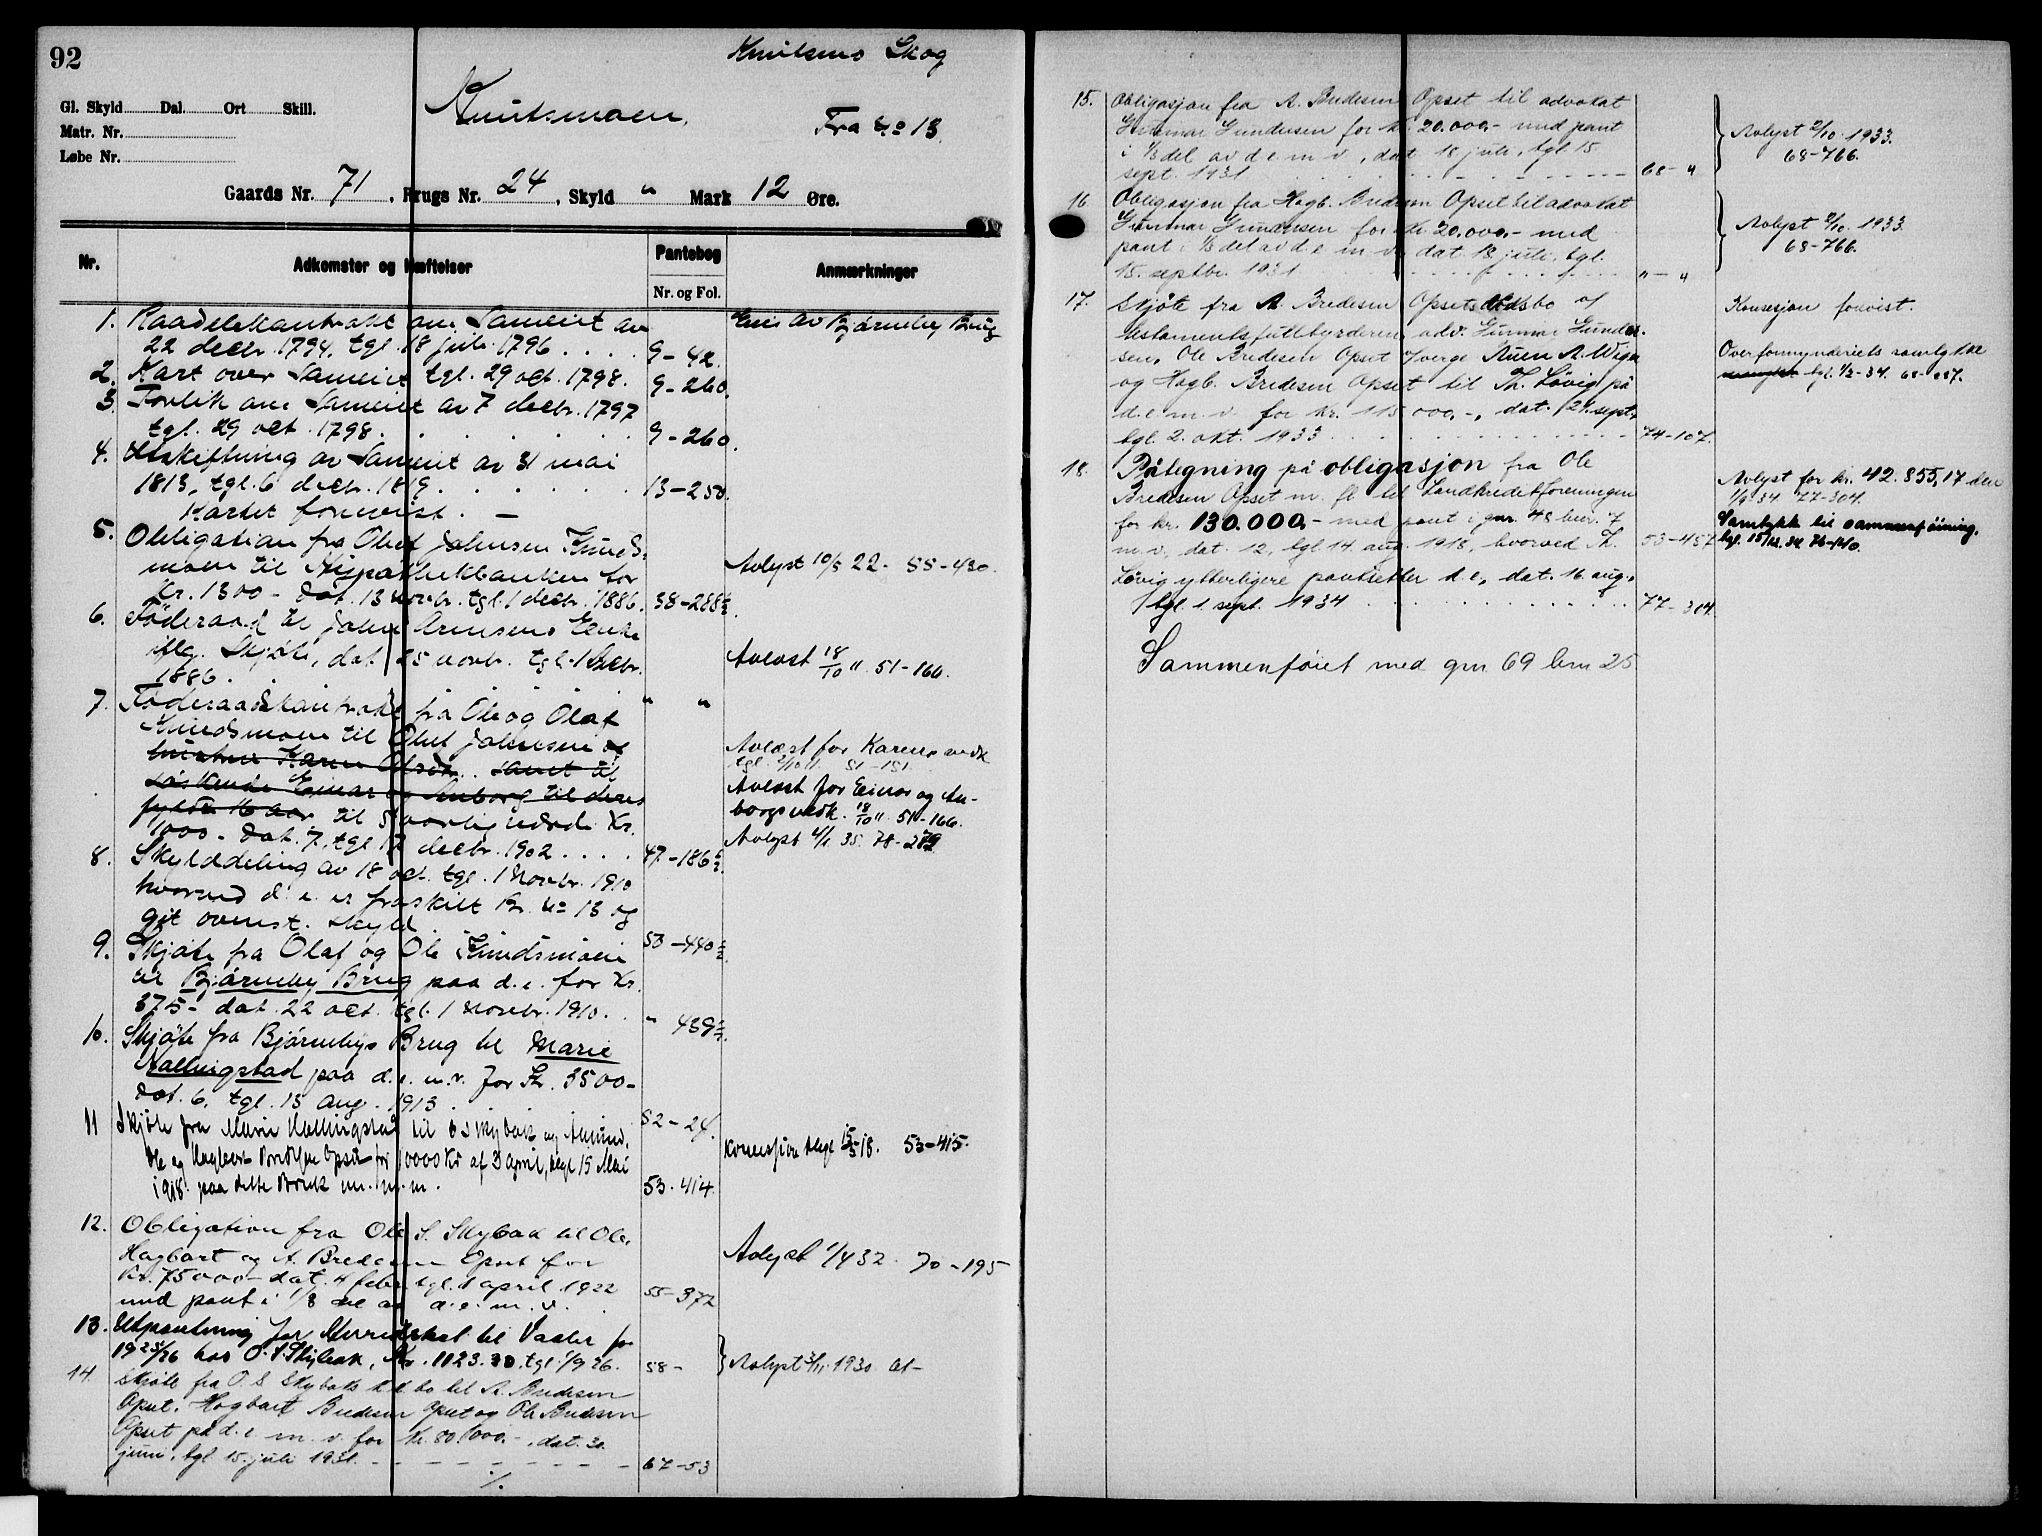 92
Knutsens Skog
Gl. Skyld Dal. Ort Skill.
Matr. Nr.
Løbe Nr.
Knutsmoen.
Fra No 13.
Gaards Nr. 71, Brugs Nr. 24, Skyld " Mark 12 Øre.
Nr.
Adkomster og Hæftelser
Pantebog
Nr. og Fol.
Anmærkninger
1. Raadelskontrakt om Sameiet av
22 decbr. 1794, tgl. 18 juli 1796 . . . . 9-42.
Eies av Bjørneby Brug
2. Kart over Sameiet tgl. 29 oct. 1798. 9-260.
3. Forlik om Sameiet av 7 decbr. 1797
tgl. 29 oct. 1798. . . . . . 9-260.
4. Utskiftning av Sameiet av 31 mai
1813, tgl. 6 decbr. 1819. . . . . . 13-250.
Kartet forevist. —
5. Obligation fra Oluf Johnsen Knuds-
moen til Hypothekbanken for
Kr. 1300 - dat. 13 novbr. tgl. 1 decbr. 1886. 38-288
Avlyst 10/5 22. 55-430.
6. Føderaad til John Arnesens Enke
iflg. Skjøte, dat. 25 novbr. tgl. 1 Decbr.
1886. . . . . . " "
Avlæst 18/10 11. 51-166.
7. Føderaadskontrakt fra Ole og Olaf
Knudsmoen til Oluf Johnsen og
hustru Karen Olsen . . samt til
søskende Einar og Anborg til deres
fyldte 16 aar til 5 aarlig værdi Kr.
1000 - dat. 7, tgl. 17 decbr. 1902 . . . . 47-186
Avlæst for Karens vedk.
tgl. 2/10 11. 51-151.
Avlæst for Einar og An-
borgs vedk. 18/10 11. 51-166.
Avlyst 4/1 35. 78-279
8. Skylddeling av 18 oct. tgl. 1 Novbr. 1910
hvorved d. e. er fraskilt Br. No 13 og
git ovenst. skyld 53-440
9. Skjøte fra Olaf og Ole Knudsmoen
til Bjørneby Brug paa d. e. for Kr.
375 - dat. 22 oct. tgl. 1 Novbr. 1910. . " 439
10. Skjøte fra Bjørnebys Brug til Marie
Nallingstad paa d. e. m. v. for Kr. 3500 -
dat. 6, tgl. 15 aug. 1913 . . 52-24.
11 Skjøte fra Marie Nallingstad til O S Skybak og Amund,
Ole og Hagbart Bredesen Opset for 10000 Kr af 3 april, tingl 15 Mai
1918 paa dette Bruk m. m. 53-414.
Konsesjon tingl 15/5-18. 53-415.
12. Obligation fra Ole S. Skybak til Ole,
Hagbart og A. Bredesen Opset for
Kr. 75000 - dat. 4 febr. tgl. 1 april 1922
med pant i 1/8 del av d. e. m. v. . 55-372
Avlyst 1/4 32. 70-195
13. Utpantning for skat til Vaaler for
1925/26 hos O. S. Skybak, Kr. 1123.30. tgl. 1/9 26. 58-
Avlyst 3/11 1930 at-
14. Skjøte fra O. S. Skybaks bo til A. Bredesen
Opset, Hagbart Bredesen Opset og Ole Bredesen
Opset på d. e. m. v. for Kr. 80.000.-, dat. 30.
juni, tgl. 15. juli 1931. - - - - - - - 67-53
./.
15. Obligasjon fra A. Bredesen Opset til advokat
Gunnar Gundersen for kr. 20.000.- med pant
i 1/3 del av d e m v, dat 18 juli, tgl. 15.
sept. 1931 68- "
Avlyst 2/10. 1933.
68-766.
16 Obligasjon fra Hagb. Bredesen Opset til advokat
Gunnar Gundersen for kr. 20.000.- med
pant i 1/3 del av d. e m v dat 18 juli, tgl.
15. septbr. 1931 "- "
Avlyst 2/10. 1933.
68-766.
17. Skjøte fra A. Bredesen Opsets dødsbo v/
testamentsfullbyrderen, adv. Gunnar Gunder-
sen, Ole Bredesen Opset /verge A.
og Hagb. Bredesen Opset til Th. Løvig på
d. e. m. v. for kr. 115 000.-, dat. 29. sept.,
tgl. 2. okt. 1933 . . . . . 74-107.
Konsesjon forevist.
Overformynderiets samtykke
tgl. 1/2-34. 68-
18. Påtegning på obligasjon fra Ole
Bredesen Opset m. fl. til Landkredittforeningen
for kr. 130.000.- med pant i gnr. 48 bnr. 7
m. v. dat. 12, tgl 14. aug. 1918, hvorved Th. 53-457
Løvig ytterligere pantsetter d. e., dat. 16. aug.,
tgl. 1 sept. 1934 . . . . . . 77-304.
Avlyst for kr. 42.855,17 den
1/9 34 77-304.
Samtykke til sammenføining.
tgl. 15/12. 34 76-140.
Sammenføiet med gnr 69 bnr 25